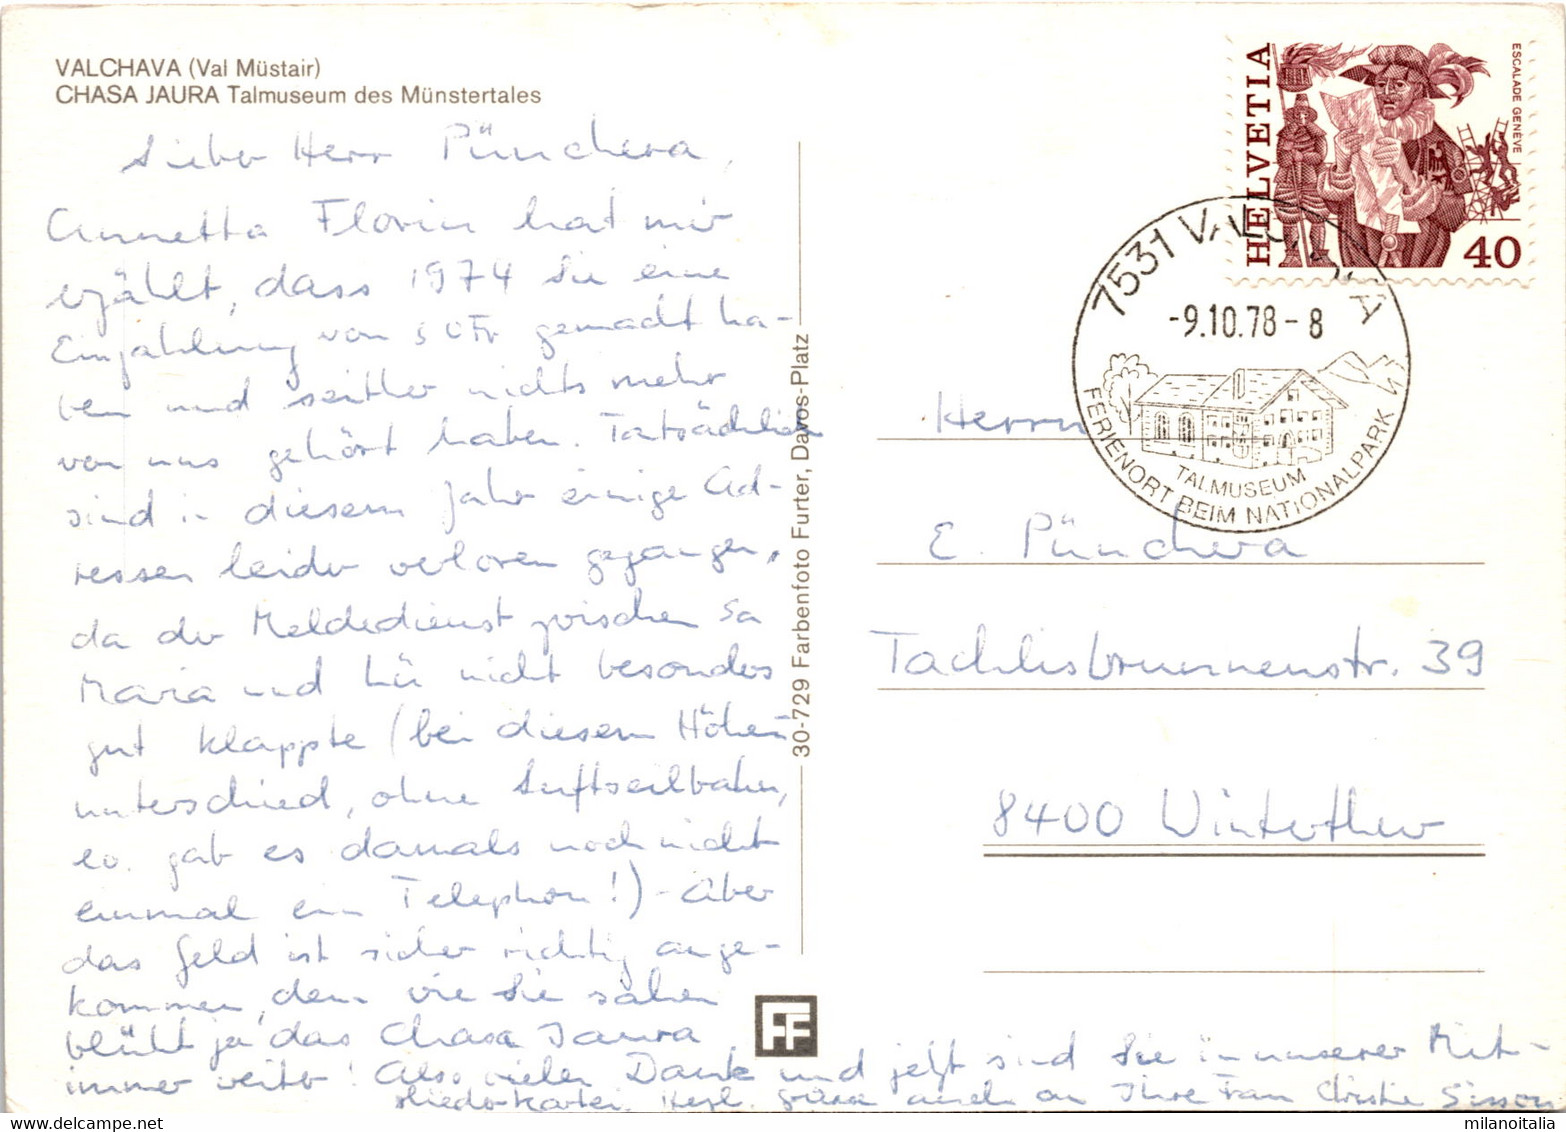 VALCHAVA (Val Müstair)
CHASA JAURA Talmuseum des Münstertales
Lieber Herr Pünchera,
Annetta Florin hat mir
erzählt, dass 1974 Sie eine
Einzahlung von 50 Fr gemacht ha-
ben und seither nichts mehr
von uns gehört haben. Tatsächlich
sind in diesem Jahr einige Ad-
ressen leider verloren gegangen,
da der Meldedienst zwischen Sa
Maria und Lü nicht besonders
gut klappte (bei diesem Höhen-
unterschied, ohne Luftseilbahn,
gab es damals noch nicht
einmal ein Telephon!) - Aber
das Geld ist sicher richtig ange-
kommen, denn wie Sie sahen
blüht ja das Chasa Jaura
immer weiter! Also vielen Dank und jetzt sind Sie in unserer Mit-
gliederkartei. Herzl. Grüsse auch an Ihre Frau Christie Sisson
30-729 Farbenfoto Furter, Davos-Platz
FF
HELVETIA
ESCALADE GENÈVE
40
7531 VALCHAVA
-9.10.78-8
TALMUSEUM
FERIENORT BEIM NATIONALPARK
Herrn
E. Pünchera
Tachlisbrunnenstr. 39
8400 Winterthur
milanoitalia